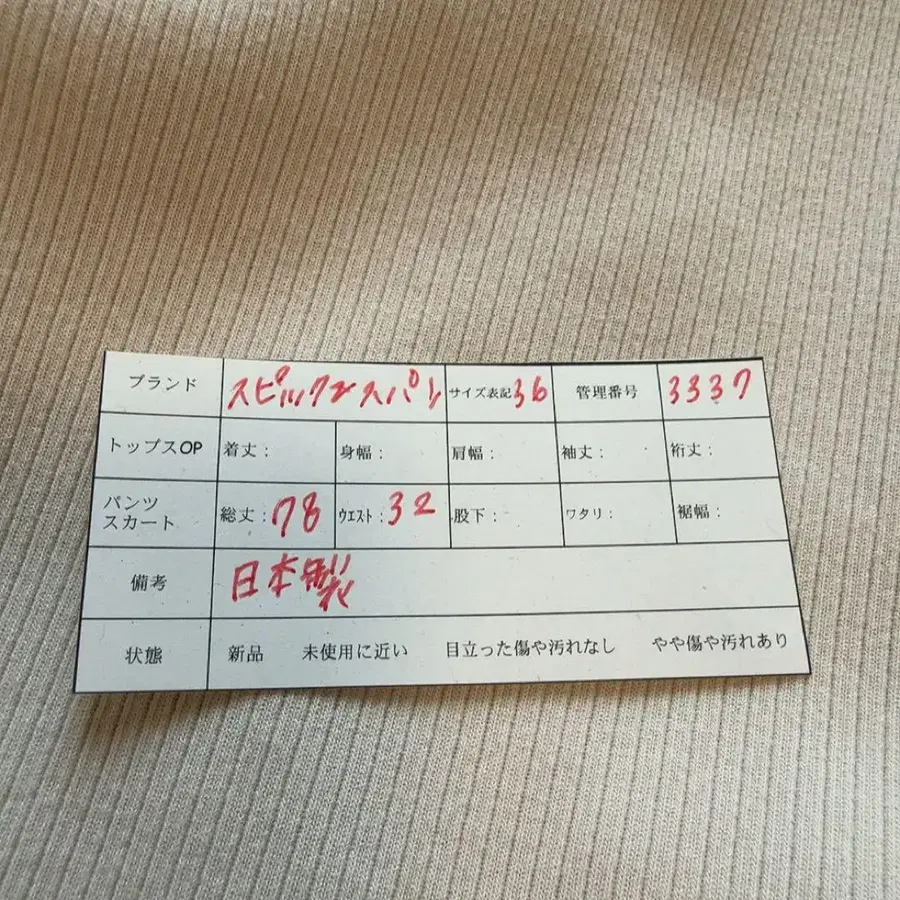 ブランド スピックアンスパン サイズ表記 36 管理番号 3337
トップスOP 着丈: 身幅: 肩幅: 袖丈: 裄丈:
パンツ
スカート 総丈: 78 ウエスト: 32 股下: ワタリ: 裾幅:
備考 日本製
状態 新品 未使用に近い 目立った傷や汚れなし やや傷や汚れあり